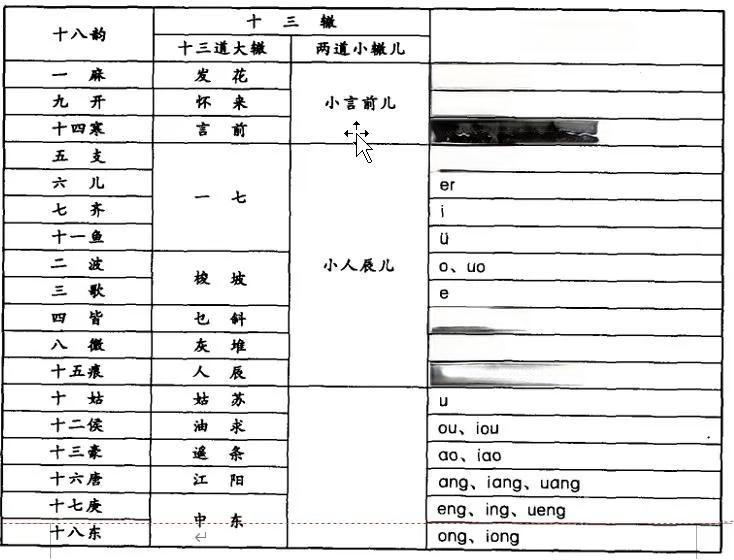 十八韵 十三辙
十三道大辙 两道小辙儿
一麻 发花 小言前儿
九开 怀来
十四寒 言前
五支 一七 小人辰儿
六儿 er
七齐 i
十一鱼 ü
二波 梭坡 o、uo
三歌 e
四皆 乜斜
八微 灰堆
十五痕 人辰
十姑 姑苏 u
十二侯 油求 ou、iou
十三豪 遥条 ao、iao
十六唐 江阳 ang、iang、uang
十七庚 中东 eng、ing、ueng
十八东 ong、iong